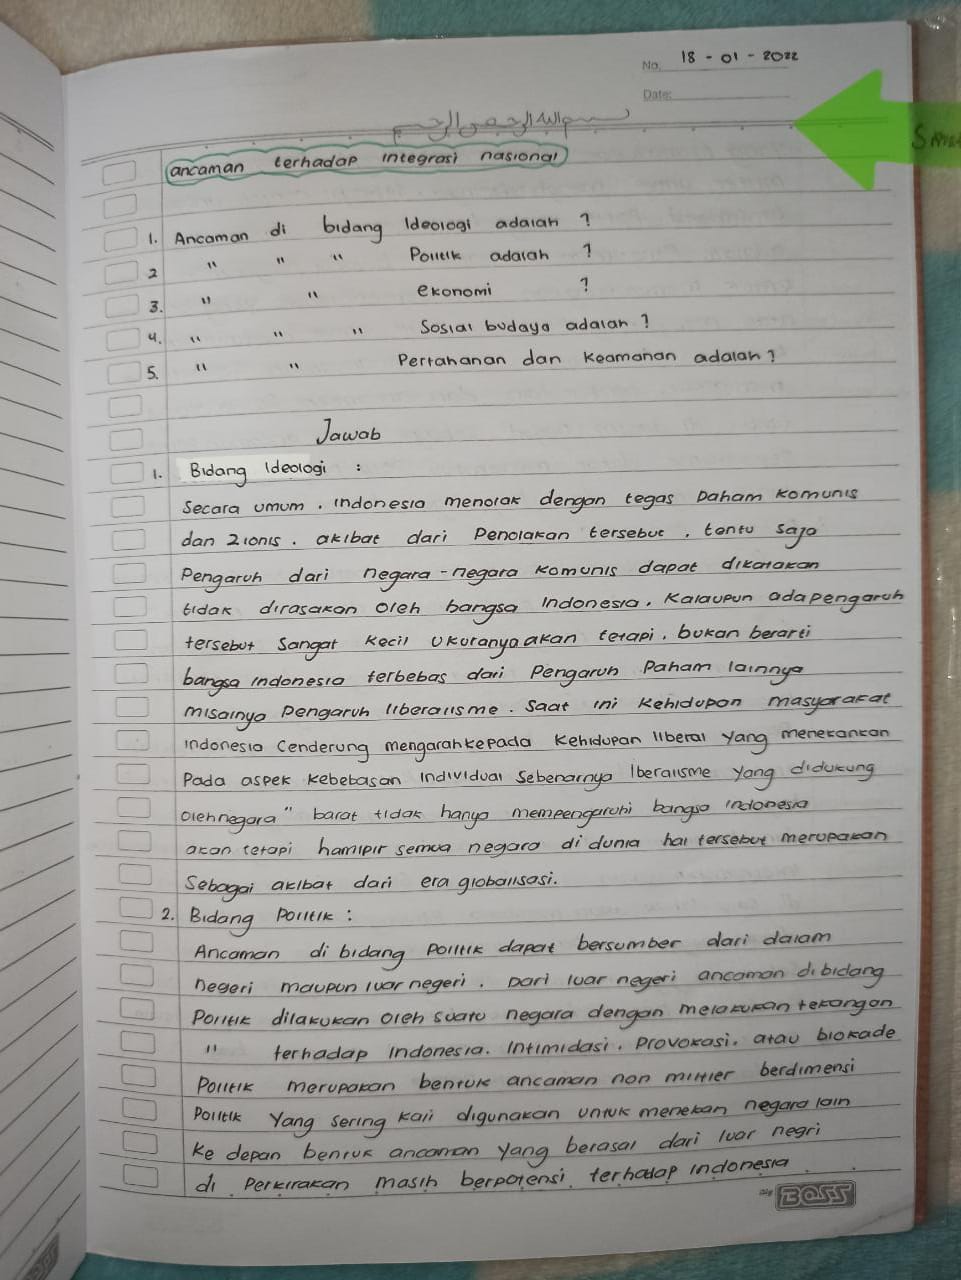 No. 18 - 01 - 2022
Date:
بسم الله الرحمن الرحيم
ancaman terhadap integrasi nasional
1. Ancaman di bidang Ideologi adalah ?
2 " " " Politik adalah ?
3. " " ekonomi ?
4. " " " Sosial budaya adalah ?
5. " " Pertahanan dan Keamanan adalah ?
Jawab
1. Bidang Ideologi :
Secara umum . indonesia menolak dengan tegas Paham komunis
dan Zionis . akibat dari Penolakan tersebut , tentu saja
Pengaruh dari negara - negara komunis dapat dikatakan
tidak dirasakan oleh bangsa indonesia. Kalaupun ada pengaruh
tersebut Sangat kecil ukuranya akan tetapi . bukan berarti
bangsa indonesia terbebas dari Pengaruh Paham lainnya
misalnya Pengaruh liberalisme . Saat ini Kehidupan masyarakat
indonesia Cenderung mengarah kepada Kehidupan liberal yang menekankan
Pada aspek kebebasan individual Sebenarnya lberalisme yang didukung
oleh negara " barat tidak hanya mempengaruhi bangsa indonesia
akan tetapi hamipir semua negara di dunia hal tersebut merupakan
Sebagai akibat dari era globalisasi.
2. Bidang Politik :
Ancaman di bidang Politik dapat bersumber dari dalam
negeri maupun luar negeri . Dari luar negeri ancaman di bidang
Politik dilakukan oleh suatu negara dengan melakukan tekangan
" terhadap indonesia. Intimidasi . Provokasi. atau blokade
Politik merupakan bentuk ancaman non militer berdimensi
Politik Yang sering kali digunakan untuk menekan negara lain
Ke depan bentuk ancaman yang berasal dari luar negri
di Perkirakan masih berpotensi terhadap indonesia .
BOSS